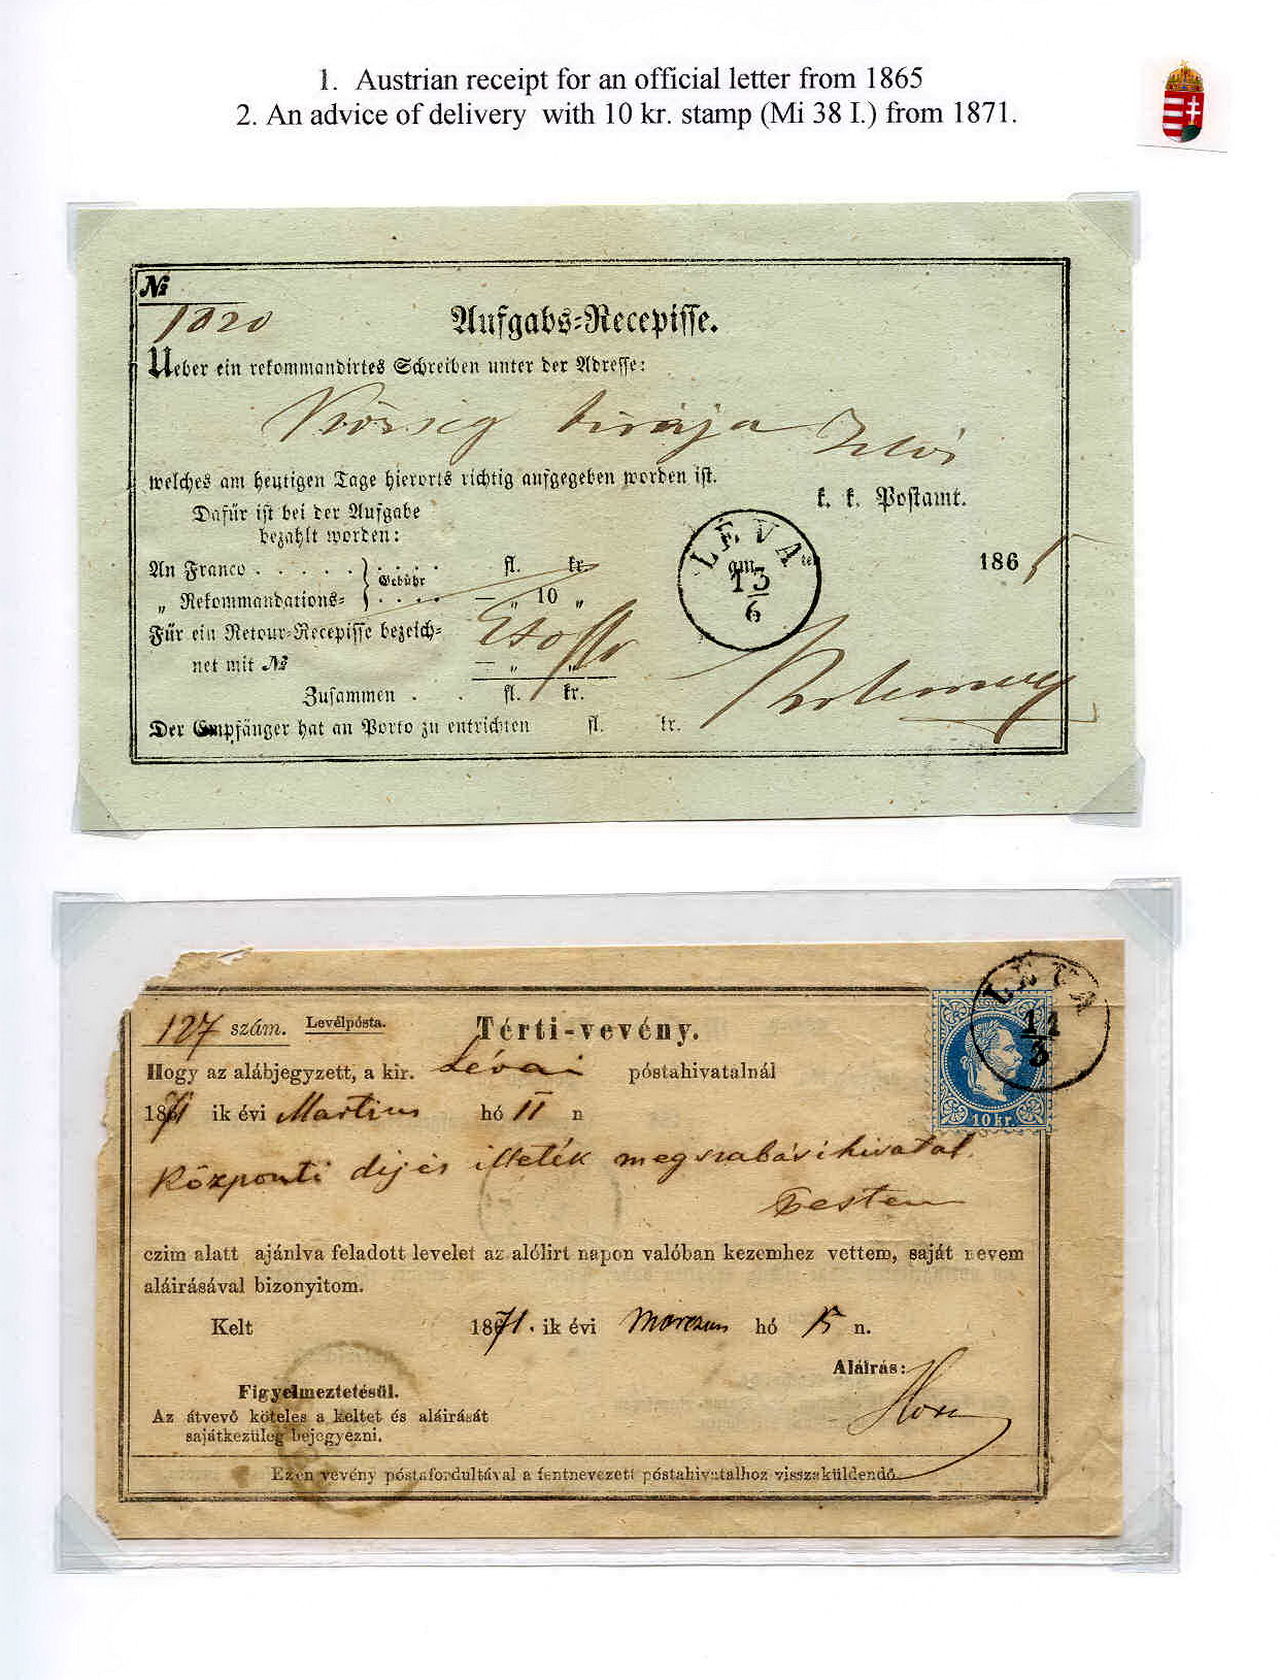 1. Austrian receipt for an official letter from 1865
2. An advice of delivery with 10 kr. stamp (Mi 38 I.) from 1871.
№
1020
Aufgabs-Recepisse.
Ueber ein rekommandirtes Schreiben unter der Adresse:
Község birája
welches am heutigen Tage hierorts richtig aufgegeben worden ist.
k. k. Postamt.
Dafür ist bei der Aufgabe
bezahlt worden:
LÉVA
13
6
1865
An Franco . . . . . Gebühr . . . . fl. kr.
„ Rekommandations- . . . . — „ 10 „
Für ein Retour-Recepisse bezeich-
net mit № — „ „
Zusammen . . fl. kr.
Der Empfänger hat an Porto zu entrichten fl. kr.
127 szám. Levélpósta. Térti-vevény.
LEVA
11
3
10 kr.
Hogy az alábjegyzett, a kir. Lévai póstahivatalnál
1871 ik évi Martius hó 11 n
Központi dij és illeték megszabási hivatal
Pesten
czim alatt ajánlva feladott levelet az alólirt napon valóban kezemhez vettem, saját nevem
aláirásával bizonyitom.
Kelt 1871. ik évi Marczius hó 15 n.
Aláirás:
Figyelmeztetésül.
Az átvevő köteles a keltet és aláirását
sajátkezüleg bejegyezni.
Ezen vevény póstafordultával a fentnevezett póstahivatalhoz visszaküldendő.